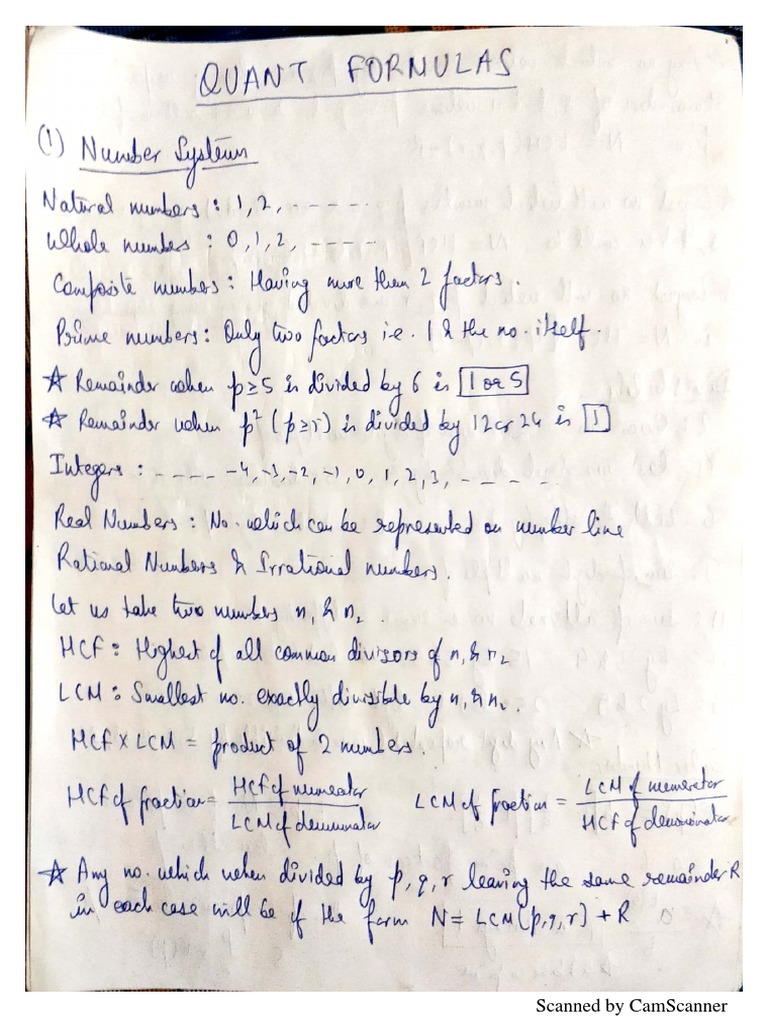 QUANT FORMULAS
(1) Number System
Natural numbers : 1, 2, - - - - -
Whole numbers : 0, 1, 2, - - - - -
Composite numbers : Having more then 2 factors.
Prime numbers : Only two factors i.e. 1 & the no. itself.
☆ Remainder when p≥5 is divided by 6 is 1 or 5
☆ Remainder when p² (p≥r) is divided by 12 or 24 is 1
Integers : - - - - -4, -3, -2, -1, 0, 1, 2, 3, - - - - -
Real Numbers : No. which can be represented on number line
Rational Numbers & Irrational numbers.
Let us take two numbers n₁ & n₂ .
HCF : Highest of all common divisors of n₁ & n₂
LCM : Smallest no. exactly divisible by n₁ & n₂.
HCF X LCM = product of 2 numbers.
HCF of fraction = HCF of numerator / LCM of denominator LCM of fraction = LCM of numerator / HCF of denominator
☆ Any no. which when divided by p, q, r leaving the same remainder R
in each case will be if the form N = LCM(p,q,r) + R
Scanned by CamScanner